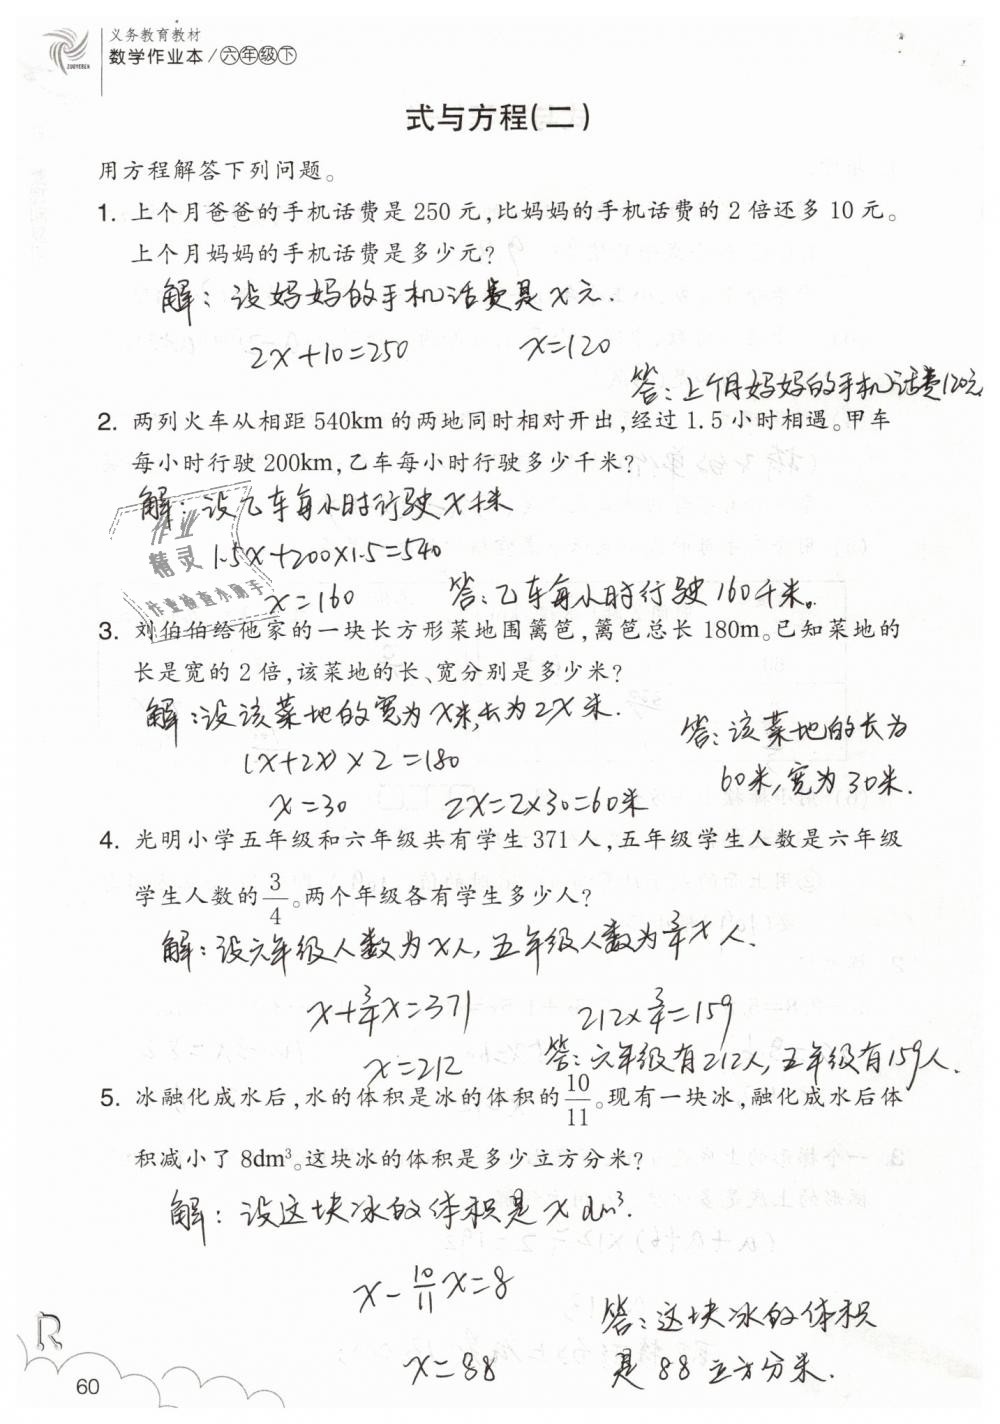 义务教育教材
数学作业本/六年级下
ZUOYEBEN
式与方程(二)
用方程解答下列问题。
1. 上个月爸爸的手机话费是 250 元,比妈妈的手机话费的 2 倍还多 10 元。
上个月妈妈的手机话费是多少元?
解：设妈妈的手机话费是x元.
2x+10=250 x=120
答：上个月妈妈的手机话费120元
2. 两列火车从相距 540km 的两地同时相对开出,经过 1.5 小时相遇。甲车
每小时行驶 200km,乙车每小时行驶多少千米?
解：设乙车每小时行驶x千米
1.5x+200×1.5=540
x=160 答：乙车每小时行驶160千米。
作业
精灵
作业检查小助手
3. 刘伯伯给他家的一块长方形菜地围篱笆,篱笆总长 180m。已知菜地的
长是宽的 2 倍,该菜地的长、宽分别是多少米?
解：设该菜地的宽为x米,长为2x米.
(x+2x)×2=180
x=30 2x=2×30=60米
答：该菜地的长为
60米,宽为30米.
4. 光明小学五年级和六年级共有学生 371 人,五年级学生人数是六年级
学生人数的 3/4。两个年级各有学生多少人?
解：设六年级人数为x人,五年级人数为3/4x人.
x+3/4x=371 212×3/4=159
x=212 答：六年级有212人,五年级有159人.
5. 冰融化成水后,水的体积是冰的体积的 10/11。现有一块冰,融化成水后体
积减小了 8dm³。这块冰的体积是多少立方分米?
解：设这块冰的体积是x dm³.
x-10/11x=8
x=88
答：这块冰的体积
是88立方分米.
R
60